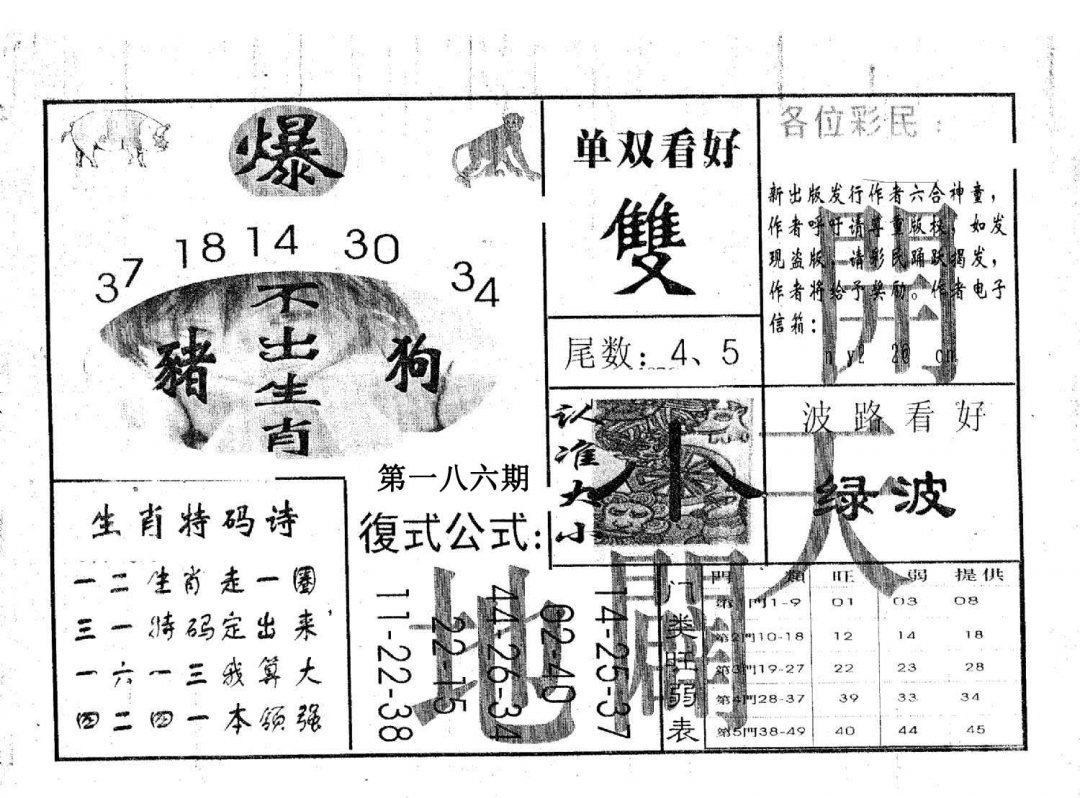 爆
37 18 14 30 34
不出生肖
豬
狗
第一八六期
生肖特码诗
一二生肖走一圈
三一特码定出来
一六一三我算大
四二四一本领强
復式公式:
11-22-38
22-15
44-26-34
02-40
14-25-37
单双看好
雙
尾数: 4、5
认准大小
小
各位彩民:
新出版发行作者六合神童,
作者呼吁请尊重版权, 如发
现盗版, 请彩民踊跃揭发,
作者将给予奖励。作者电子
信箱:
波路看好
绿波
天
開
地
開
门类旺弱表
門 類 旺 弱 提供
第1門1-9 01 03 08
第2門10-18 12 14 18
第3門19-27 22 23 28
第4門28-37 39 33 34
第5門38-49 40 44 45